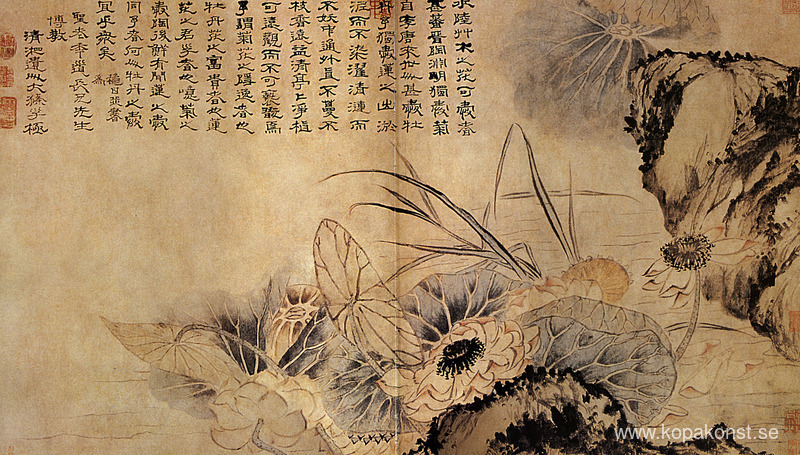 水陸艸木之花可愛者
甚蕃晉陶淵明獨愛菊
自李唐來世人甚愛牡
丹予獨愛蓮之出淤
泥而不染濯清漣而
不妖中通外直不蔓不
枝香遠益清亭亭淨植
可遠觀而不可褻翫焉
予謂菊花之隱逸者也
牡丹花之富貴者也蓮
花之君子者也噫菊之
愛陶後鮮有聞蓮之愛
同予者何人牡丹之愛
宜乎衆矣
道長兄先生
博教
清湘遺人大滌子極
www.kopakonst.se